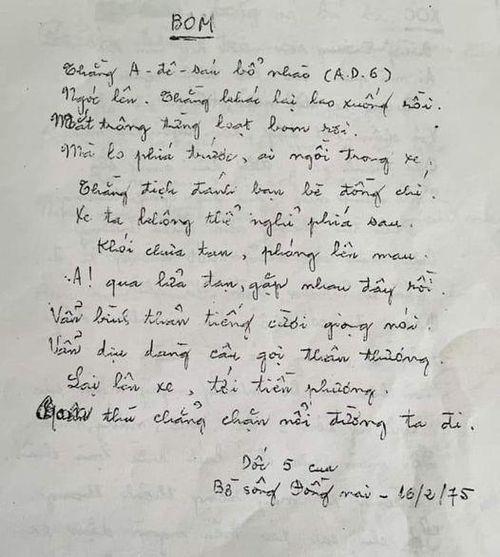 BOM
Thằng A-đê-sáu bổ nhào (A.D.6)
Ngóc lên. Thằng khác lại lao xuống rồi.
Mắt trông từng loạt bom rơi.
Mà lo phía trước, ai ngồi trong xe.
Thằng địch đánh bạn bè đồng chí.
Xe ta không thể nghỉ phía sau.
Khói chưa tan, phóng lên mau.
A! qua lửa đạn, gặp nhau đây rồi.
Vẫn bình thản tiếng cười giọng nói.
Vẫn dịu dàng câu gọi thân thương.
Lại lên xe, tới tiền phương.
Quân thù chẳng chặn nổi đường ta đi.
Dốc 5 cua
Bờ sông Đồng nai - 16/2/75